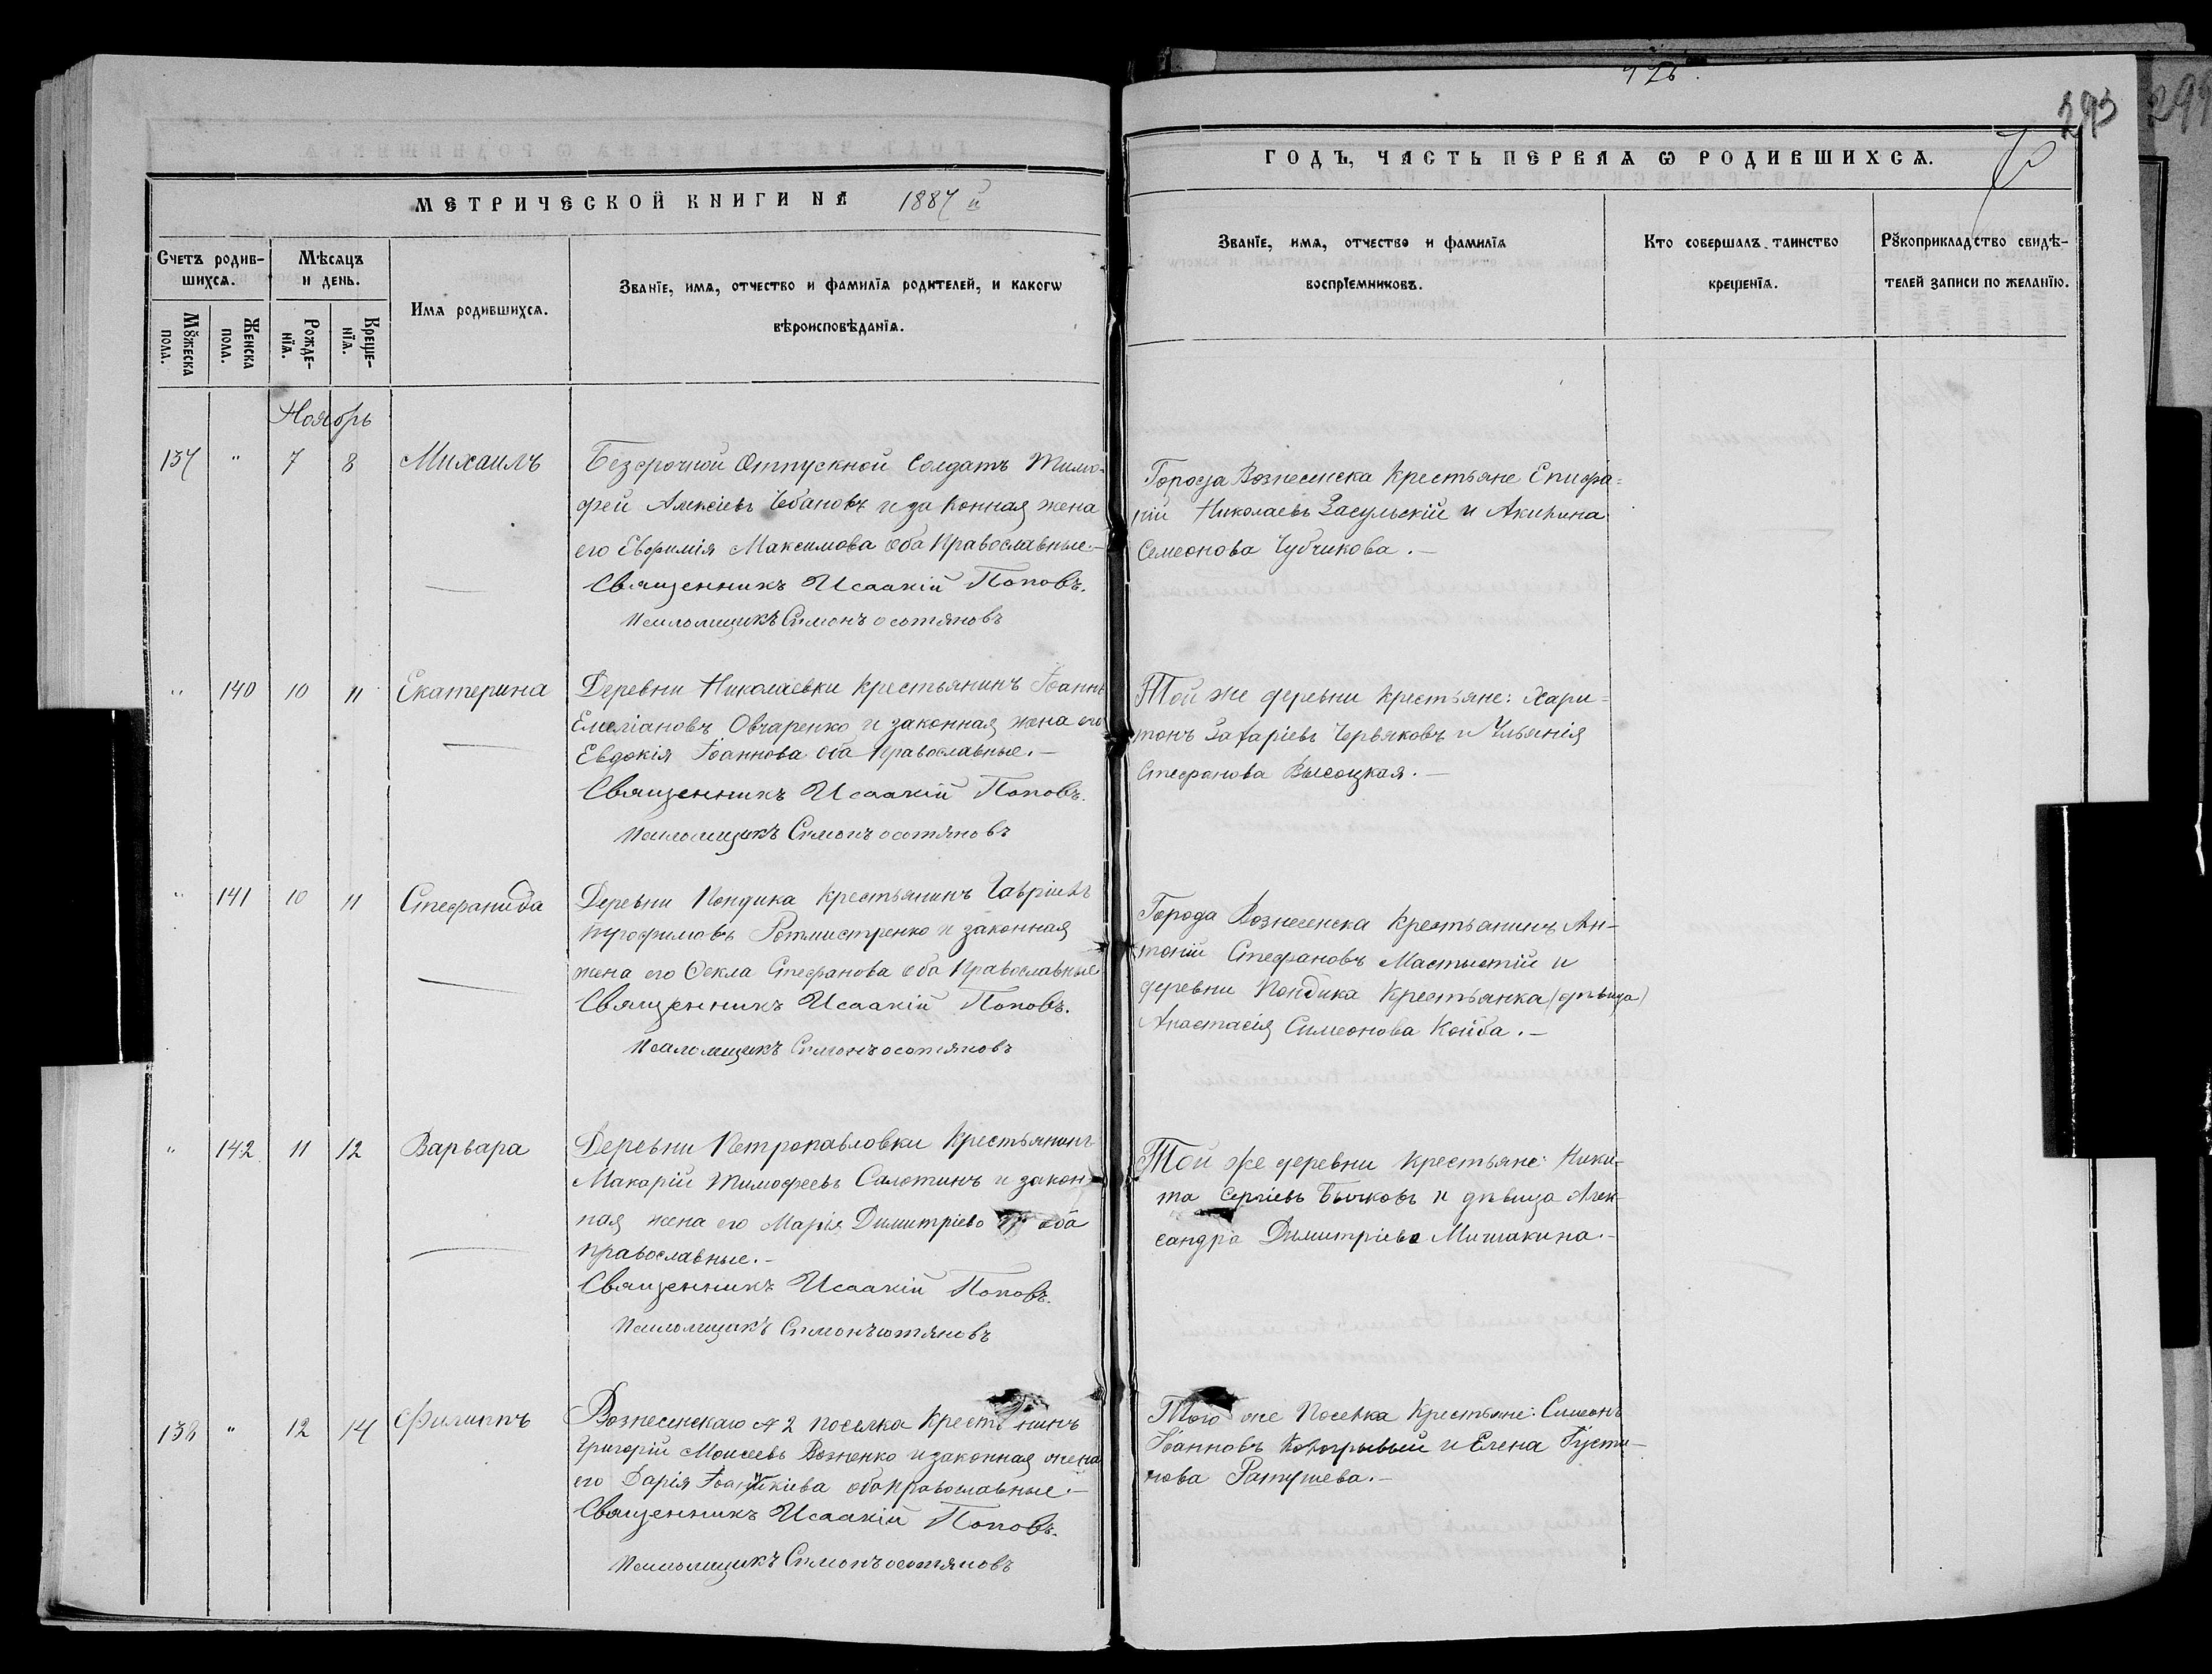 293
МЕТРИЧЕСКОЙ КНИГИ НА 1887 й
ГОДЪ, ЧАСТЬ ПЕРВАЯ Ѡ РОДИВШИХСѦ.
Счетъ родив-
шихсѧ.
Мѣсѧцъ
и день.
Имѧ родившихсѧ.
Званїе, имѧ, отчество и фамилїѧ родителей, и какогѡ
вѣроисповѣданїѧ.
Мꙋжеска
пола.
Женска
пола.
Рожде-
нїѧ.
Креще-
нїѧ.
Званїе, имѧ, отчество и фамилїѧ
воспрїемниковъ.
Кто совершалъ таинство
крещенїѧ.
Рꙋкоприкладство свидѣ-
телей записи по желанїю.
Ноябрь
137 " 7 8 Михаилъ
Безсрочной Отпускной Солдатъ Тимо-
фей Алексіевъ Чебановъ и законная жена
его Евфимія Максимова оба Православные.-
Священникъ Исаакій Поповъ.
Псаломщикъ Симонъ
Города Вознесенска Крестьяне Епифа=
ній Николаевъ Засульскій и Акилина
Семеонова Чубчикова.-
" 140 10 11 Екатерина
Деревни Николаевки Крестьянинъ Іоаннъ
Емеліановъ Овчаренко и законная жена его
Евдокія Іоаннова оба Православные.-
Священникъ Исаакій Поповъ.
Псаломщикъ Симонъ
Той же деревни Крестьяне: Хари=
тонъ Захаріевъ Червяковъ и Ульянія
Стефанова Высоцкая.-
" 141 10 11 Стефанида
Деревни Кондика Крестьянинъ Гавріилъ
Трофимовъ Ротмистренко и законная
жена его Ѳекла Стефанова оба Православные
Священникъ Исаакій Поповъ.
Псаломщикъ Симонъ
Города Вознесенска Крестьянинъ Ан-
тоній Стефановъ и
деревни Кондика Крестьянка (дѣвица)
Анастасія Симеонова Койба.-
" 142 11 12 Варвара
Деревни Петропавловки Крестьянинъ
Макарій Тимофеевъ Салотинъ и закон-
ная жена его Марія Димитріева оба
православные.-
Священникъ Исаакій Поповъ.
Псаломщикъ Симонъ
Той же деревни Крестьяне: Ники-
та Сергіевъ Бычковъ и дѣвица Алек-
сандра Димитріева Мишакина.-
138 " 12 14 Филиппъ
Вознесенскаго № 2 поселка Крестьянинъ
Григорій Моисеевъ Возненко и законная жена
его Дарія оба православные.-
Священникъ Исаакій Поповъ.
Псаломщикъ Симонъ
Того же Поселка Крестьяне: Симеонъ
Іоанновъ и Елена Іусти-
нова Ратушева.-